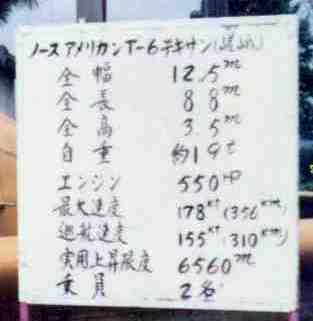 ノースアメリカンT-6テキサン
全幅 12.5m
全長 8.8m
全高 3.5m
自重 約1.9t
エンジン 550HP
最大速度 178KT (356Km)
巡航速度 155KT (310Km)
実用上昇限度 6560m
乗員 2名